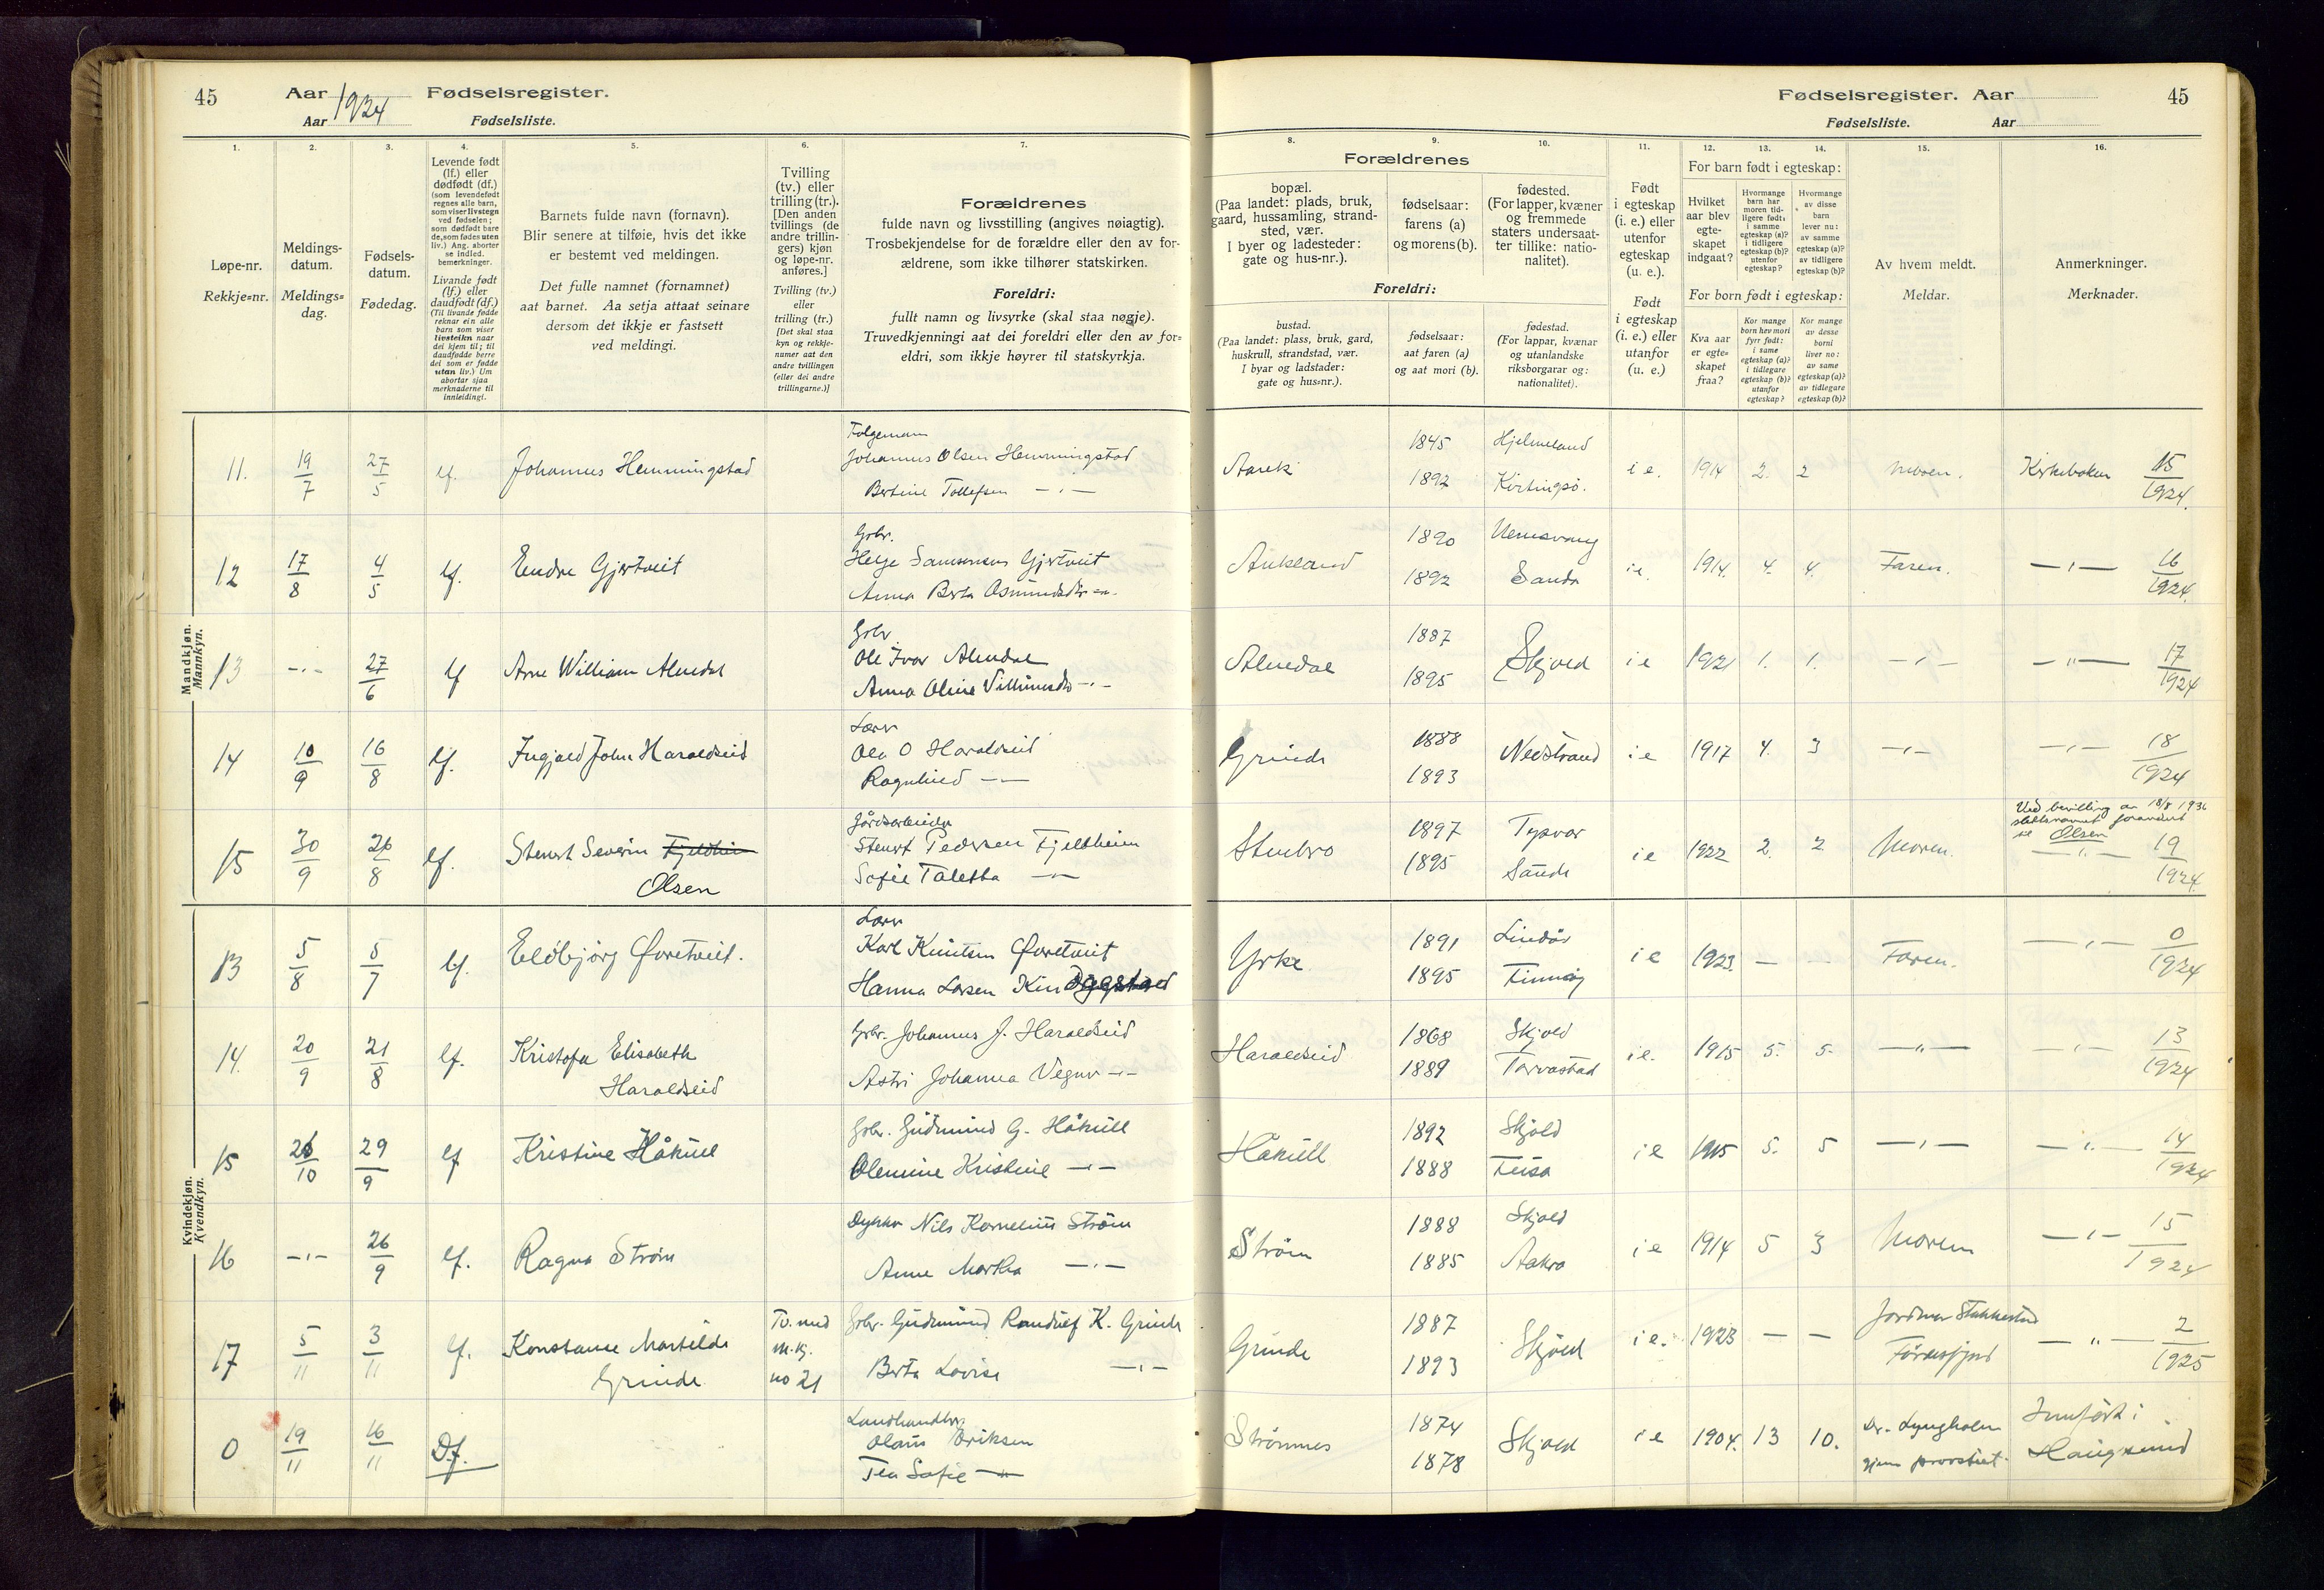 45 Aar 1924 Fødselsregister.
Aar Fødselsliste.
Fødselsregister. Aar 45
Fødselsliste. Aar
1.
Løpe-nr.
Rekkje=nr.
2.
Meldings-
datum.
Meldings=
dag.
3.
Fødsels-
datum.
Fødedag.
4.
Levende født
(lf.) eller
dødfødt (df.)
(som levendefødt
regnes alle barn,
som viser livstegn
ved fødselen;
som dødfødt bare
de, som fødes uten
liv.) Ang. aborter
se indled.
bemerkninger.
Livande født
(lf.) eller
daudfødt (df.)
(Til livande fødde
reknar ein alle
barn som viser
livsteikn naar
dei kjem til; til
daudfødde berre
dei som er fødde
utan liv.) Um
abortar sjaa
merknaderne til
innleidingi.
5.
Barnets fulde navn (fornavn).
Blir senere at tilføie, hvis det ikke
er bestemt ved meldingen.
Det fulle namnet (fornamnet)
aat barnet. Aa setja attaat seinare
dersom det ikkje er fastsett
ved meldingi.
6.
Tvilling
(tv.) eller
trilling (tr.).
[Den anden
tvillings (de
andre trillin-
gers) kjøn
og løpe-nr.
anføres.]
Tvilling (tv.)
eller
trilling (tr.)
[Det skal staa
kyn og rekkje-
numer aat den
andre tvillingen
(eller dei andre
trillingarne.)]
7.
Forældrenes
fulde navn og livsstilling (angives nøiagtig).
Trosbekjendelse for de forældre eller den av for-
ældrene, som ikke tilhører statskirken.
Foreldri:
fullt namn og livsyrke (skal staa nøgje).
Truvedkjenningi aat dei foreldri eller den av for=
eldri, som ikkje høyrer til statskyrkja.
Forældrenes
8.
bopæl.
(Paa landet: plads, bruk,
gaard, hussamling, strand-
sted, vær.
I byer og ladesteder:
gate og hus-nr.).
9.
fødselsaar:
farens (a)
og morens (b).
10.
fødested.
(For lapper, kvæner
og fremmede
staters undersaat-
ter tillike: natio-
nalitet).
Foreldri:
bustad.
(Paa landet: plass, bruk, gard,
huskrull, strandstad, vær.
I byar og ladstader:
gate og hus=nr.).
fødselsaar:
aat faren (a)
og aat mori (b).
fødestad.
(For lappar, kvænar
og utanlandske
riksborgarar og:
nationalitet).
11.
Født
i egteskap
(i. e.) eller
utenfor
egteskap
(u. e.).
Født
i egteskap
(i. e.) eller
utanfor
(u. e.)
For barn født i egteskap:
12.
Hvilket
aar blev
egte-
skapet
indgaat?
13.
Hvormange
barn har
moren tid-
ligere født:
i samme
egteskap (a)?
i tidligere
egteskap (b)?
utenfor
egteskap?
14.
Hvormange
av disse
barn
lever nu:
av samme
egteskap (a)?
av tidligere
egteskap (b)?
For born født i egteskap:
Kva aar
er egte=
skapet
fraa?
Kor mange
born hev mori
fyrr født:
i same
egteskap (a)?
i tidlegare
egteskap (b)?
utanfor
egteskap?
Kor mange
av desse
borni
liver no:
av same
egteskap (a)?
av tidlegare
egteskap (b)?
15.
Av hvem meldt.
Meldar.
16.
Anmerkninger.
Merknader.
Mandkjøn.
Mannkyn.
11. 19/7 27/5 lf. Johannes Hemmingstad
Folgemann
Johannes Olsen Hemmingstad
Bertine Tollefsen —"—
Aarek 1845 1892 Hjelmeland
i e. 1914 2. 2 Moren. Kirkeboken 15/1924.
12 17/8 4/5 lf. Endre Gjertveit
Gbr.
Helge Samsonsen Gjertveit
Anna Berta
Aukland 1890 1892 Sanda
i e. 1914. 4. 4. Faren. —"— 16/1924.
13 —"— 27/6 lf Arne William Alnedal
Gbr
Ole Ivar Alnedal
Anna Oline —"—
Alnedal 1887 1895 Skjold
i e 1921 1. 1. —"— —"— 17/1924
14 10/9 16/8 lf. Ingjald John Haraldseid
Lærer
Ola O Haraldseid
Ragnhild —"—
Grinde 1888 1893 Nedstrand
i e 1917 4. 3 —"— —"— 18/1924
15 30/9 26/8 lf. Stenert Severin Fjeldheim
Olsen
Gårdsarbeider
Stenert Pedersen Fjeldheim
Sofie Taletta —"—
Stenbro 1897 1895 Tysvær
Sande
i e 1922 2. 2 Moren.
Ved bevilling av 18/8 193
slektsnavnet forandret
til Olsen
—"— 19/1924.
Kvindekjøn.
Kvendkyn.
13 5/8 5/7 lf. Eldbjørg Øvretveit.
Lærer
Karl Knutsen Øvretveit
Hanna Larsen
Yrke 1891 1895 Lindås
i e 1923. — — Faren. —"— 0/1924
14. 20/9 21/8 lf. Kristofa Elisabeth
Haraldseid
Gbr. Johannes J. Haraldseid
Astri Johanna —"—
Haraldseid 1868 1889 Skjold
Torvastad
i e. 1915 5. 5. —"— —"— 13/1924
15 26/10 29/9 lf Kristine Håkull
Gbr. Gudmund G. Håkull
Olemine Kristine —"—
Håkull 1892 1888 Skjold
i e 1915 5. 5 —"— —"— 14/1924
16 —"— 26/9 lf. Ragna Strøm
Nils Kornelius Strøm
Anne Martha —"—
Strøm 1888 1885 Skjold
Aakra
i e 1914 5 3 Moren —"— 15/1924
17 5/11 3/11 lf. Konstanse Matilde
Grinde
Tv. med
m.kj.
no 21
Gbr. Gudmund Randulf K. Grinde
Berta Lovise —"—
Grinde 1887 1893 Skjold
i e. 1923 — — Jordmor Stakkestad
Førresfjord
—"— 2/1925
0 19/11 16/11 Df.
Landhandler
Olaus Eriksen
Tea Sofie —"—
Strømnes 1874 1878 Skjold
i e 1904. 13 10. Dr. Lyngholm
gjen. provstiet.
Innført i
Haugesund